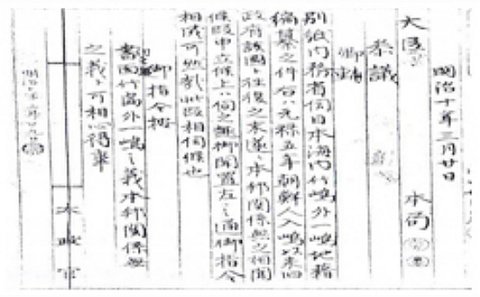 明治十年三月廿日
大臣 本局
参議
卿輔
別紙内務省伺日本海内竹嶋外一嶋地籍
編纂之件右ハ元禄五年朝鮮人入嶋以来旧
政府該国ト往復之末遂ニ本邦関係無之相聞
候段申立候上ハ伺之趣御聞置左之通御指令
相成可然哉此段相伺候也
御指令按
書面竹島外一嶋之義本邦関係無
之義ト可相心得事
太政官
明治十年三月廿九日